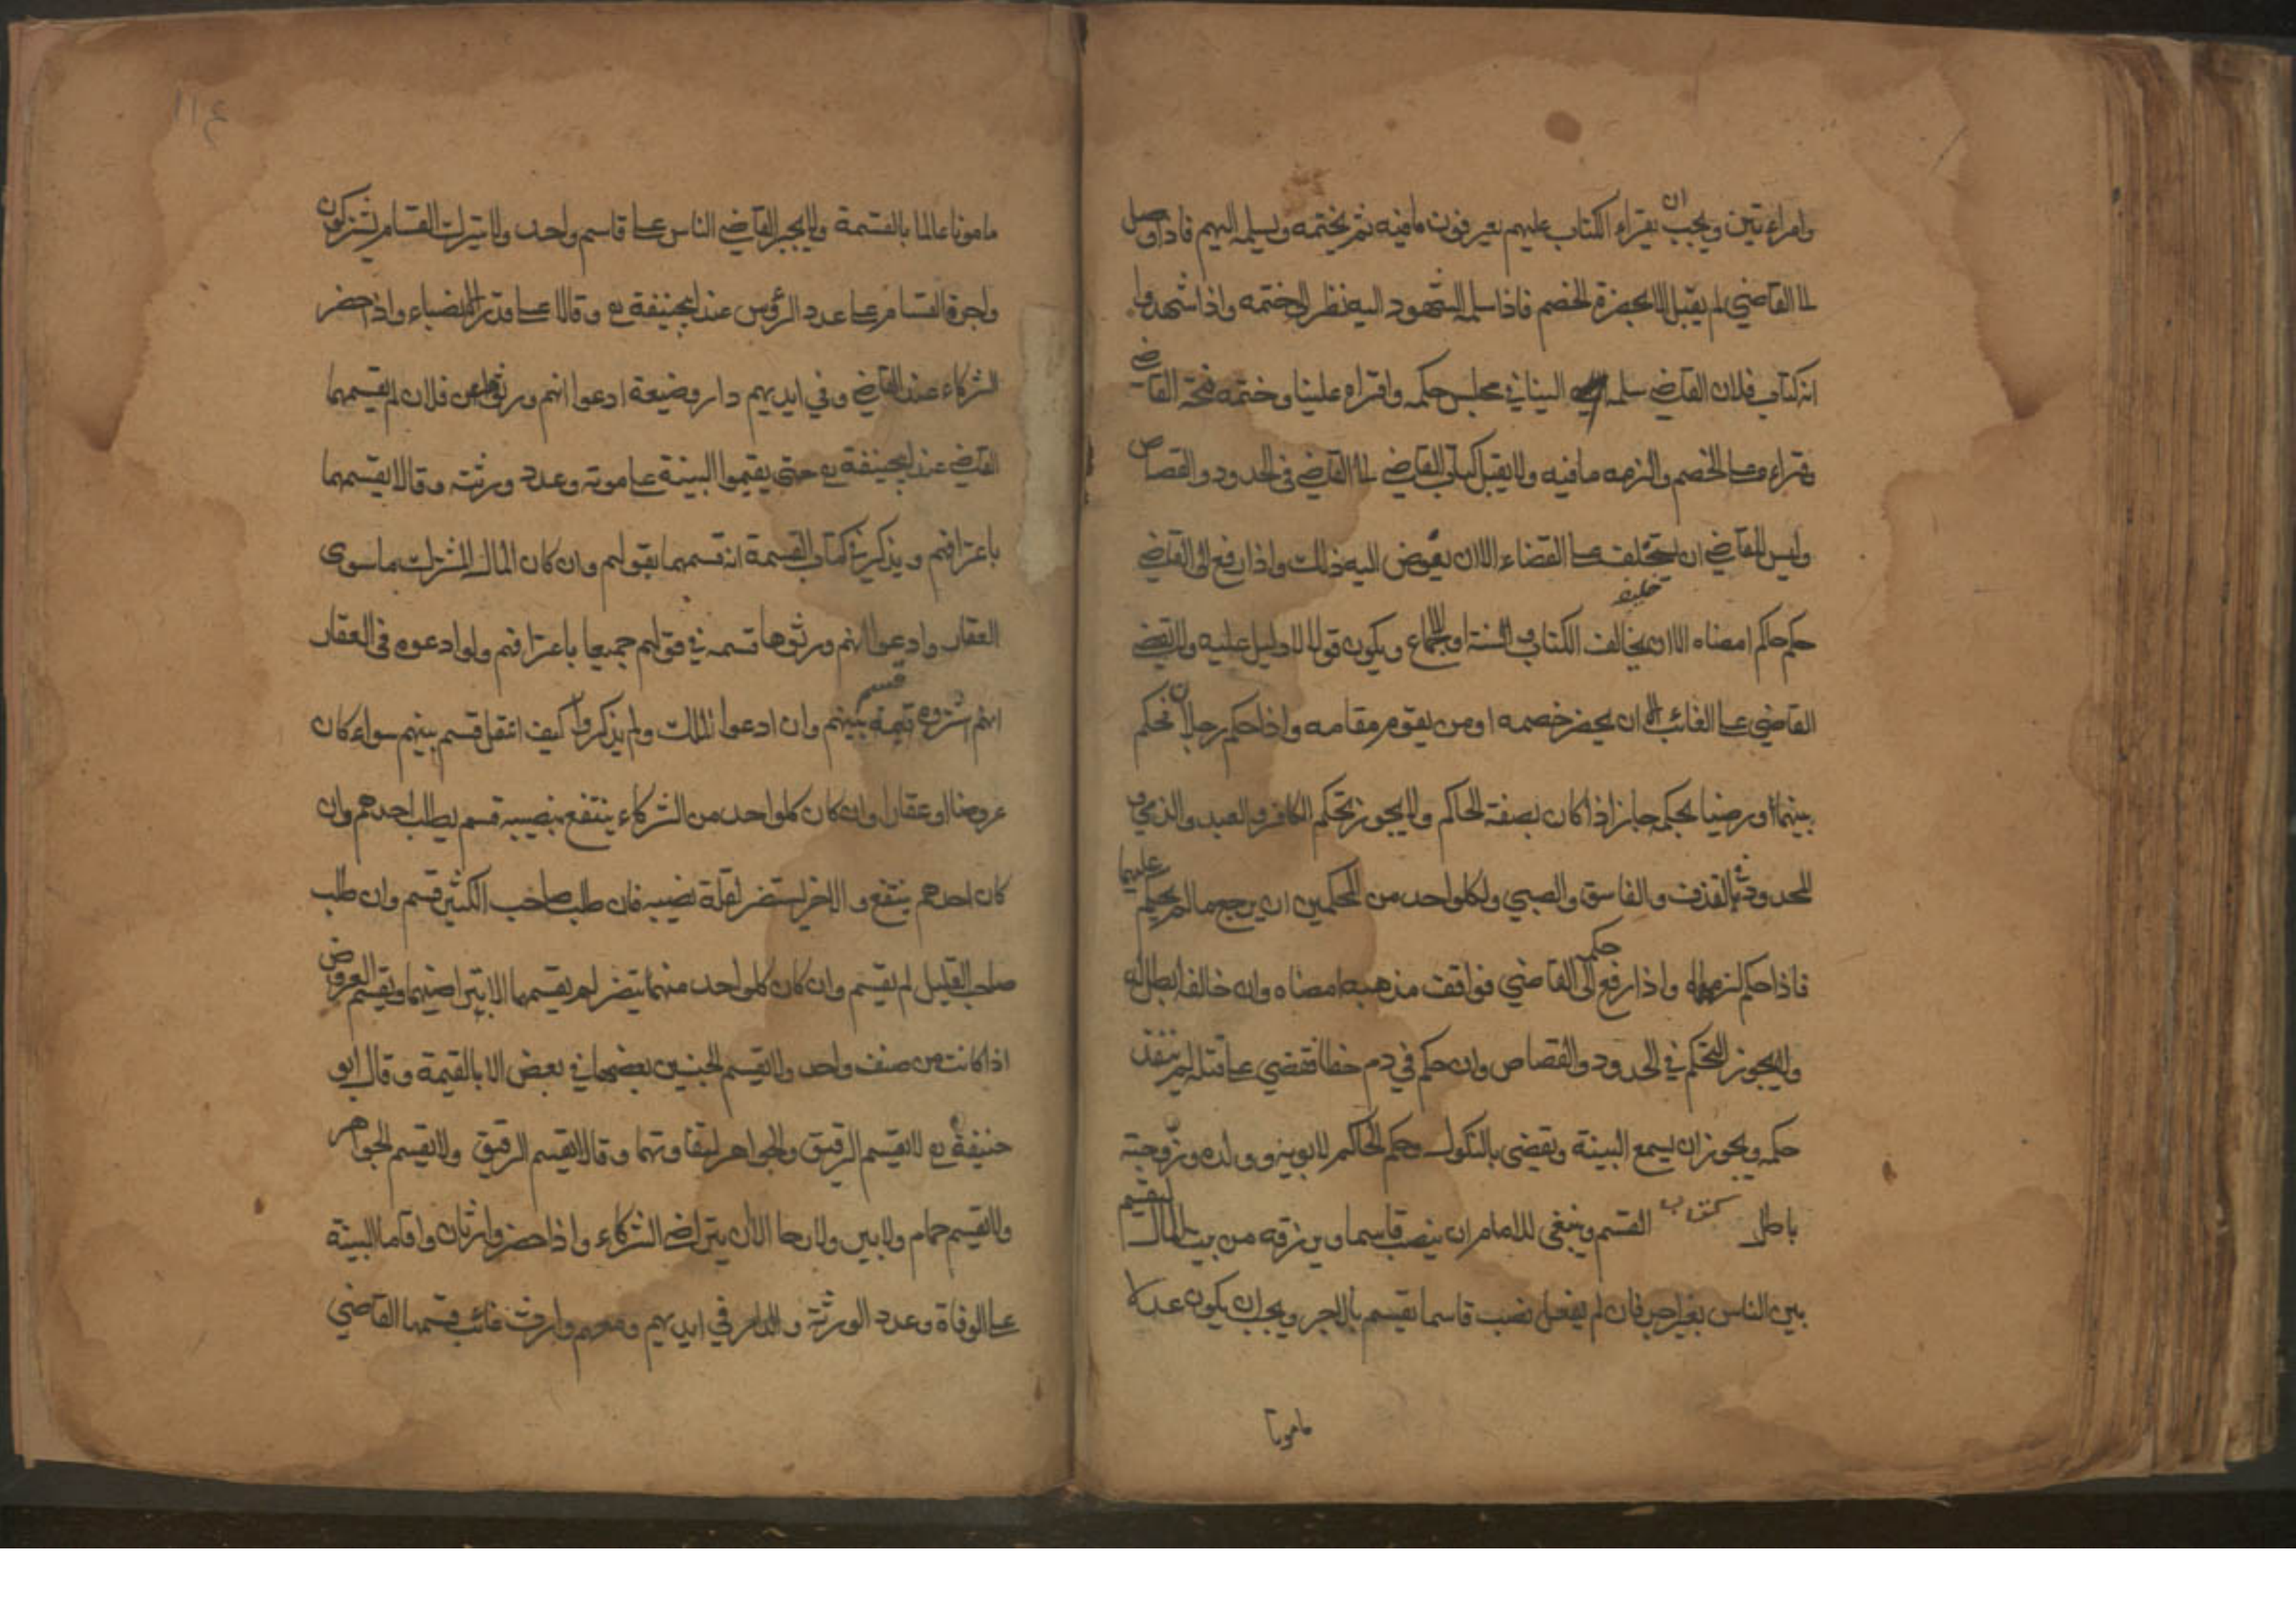 وامراءتين ويجب ان يقراء الكتاب عليهم ليعرفون ما فيه ثم يختمه ويسلمه اليهم فاذا وصل
الى القاضي لم يقبل الا بحضرة الخصم فاذا سلمه الشهود اليه نظر الى ختمه واذا شهدوا
انه كتاب فلان القاضي سلمه الينا في مجلس حكمه واقراه علينا وختمه فتحه القاضي
وقراء ه على الخصم والزمه ما فيه ولا يقبل كتاب القاضي الى القاضي في الحدود والقصاص
وليس للقاضي ان يستخلف على القضاء الا ان يفوض اليه ذالك واذا رفع الى القاضي
حكم حاكم امضاه الا ان يخالف الكتاب والسنة او الاجماع ويكون قولا لا دليل عليه ولا يقضي
القاضي على الغائب الا ان يحضر خصمه او من يقوم مقامه واذا حكم رجلان فحكم
بينهما ورضيا بحكمه جاز اذا كان بصفة الحاكم ولا يجوز تحكم الكافر والعبد والذمي و
المحدود في القذف والفاسق والصبي ولكل واحد من المحكمين ان يرجع ما لم يحكم عليهما
فاذا حكم لزمهما واذا رفع حكمه الى القاضي فوافق مذهبه امضاه وان خالفه ابطله
ولا يجوز التحكم في الحدود والقصاص وان حكم في دم خطا فقضي على قتله لم ينفذ
حكمه ويجوز ان يسمع البينة ويقضي بالنكول وحكم الحاكم لابويه وولده وزوجته
باطل كتاب القسم وينبغي للامام ان ينصب قاسما ويرزقه من بيت المال ليقسم
بين الناس بغير اجر فان لم يفعل نصب قاسما يقسم بالاجر ويجب ان يكون عدلا
مامونا
١١٤
مامونا عالما بالقسمة ولا يجبر القاضي الناس على قاسم واحد ولا يترك القسام يشتركون
واجرة القسام على عدد الرؤس عند ابيحنيفة رح وقالا على قدر الانصباء واذا حضر
الشركاء عند القاضي وفي ايديهم دار وضيعة ادعوا انهم ورثوها عن فلان لم يقسمها
القاضي عند ابيحنيفة رح حتى يقيموا البينة على موته وعدد ورثته وقالا يقسمها
باعترافهم ويذكر في كتاب القسمة انه قسمها بقولهم وان كان المال المشترك ما سوى
العقار وادعوا انهم ورثوها قسمه في قولهم جميعا باعترافهم ولو ادعوه في العقار
انهم اشتروه قسمه بينهم وان ادعوا الملك ولم يذكروا كيف انتقل قسم بينهم سواء كان
عروضا او عقارا وان كان كل واحد من الشركاء ينتفع بنصيبه قسم بطلب احدهم وان
كان احدهم ينتفع والاخر يستضر لقلة نصيبه فان طلب صاحب الكثير قسم وان طلب
صاحب القليل لم يقسم وان كان كل واحد منهما يتضر لم يقسمها الا بتراضيهما ويقسم العروض
اذا كانت من صنف واحد ولا يقسم الجنسين بعضهما في بعض الا بالقيمة وقال ابو
حنيفة رح لا يقسم الرقيق والجواهر لتفاوتهما وقالا يقسم الرقيق ولا يقسم الجواهر
ولا يقسم حمام ولا بير ولا رحا الا ان يتراضى الشركاء واذا حضر وارثان واقاما البينة
على الوفاة وعدد الورثة والدار في ايديهم ومعهم وارث غائب قسمها القاضي